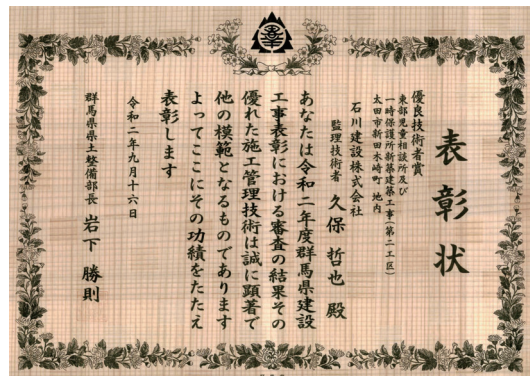 表彰状
優良技術者賞
東部児童相談所及び
一時保護所新築建築工事(第二工区)
太田市新田木崎町 地内
石川建設株式会社
監理技術者 久保 哲也 殿
あなたは令和二年度群馬県建設
工事表彰における審査の結果その
優れた施工管理技術は誠に顕著で
他の模範となるものであります
よってここにその功績をたたえ
表彰します
令和二年九月十六日
群馬県県土整備部長 岩下 勝則